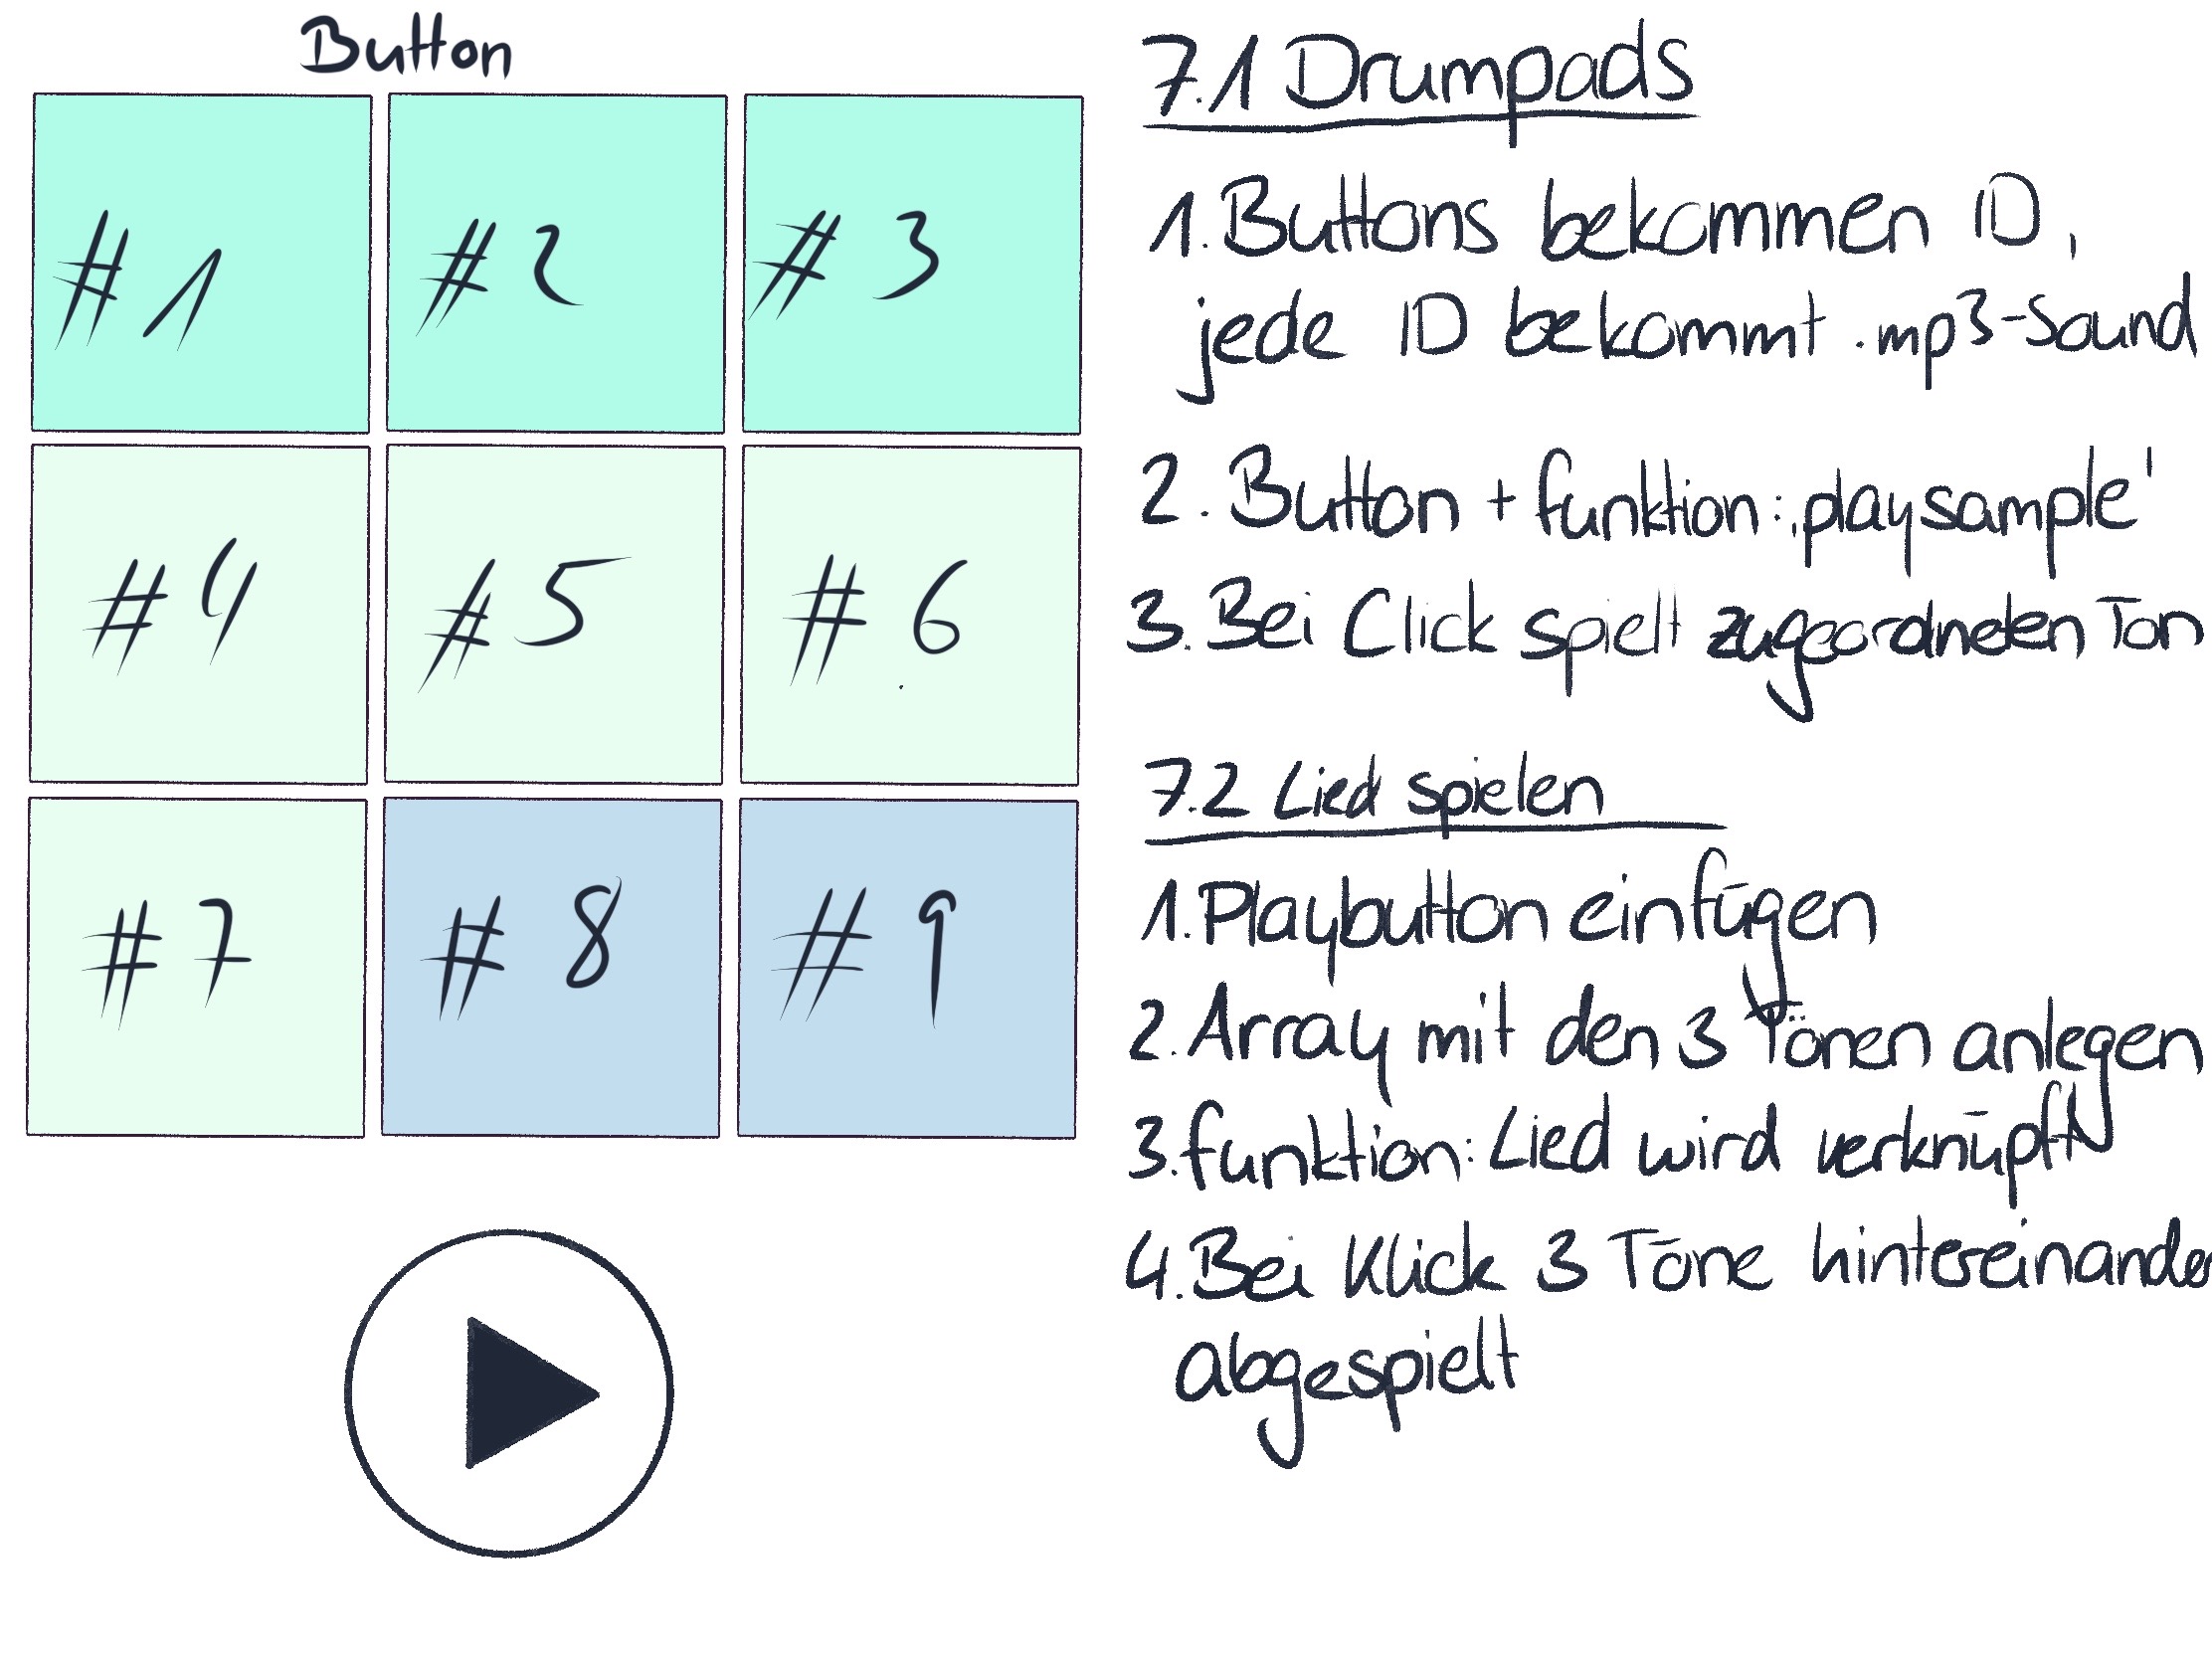 Button
#1
#2
#3
#4
#5
#6
#7
#8
#9
7.1 Drumpads
1. Buttons bekommen ID,
jede ID bekommt .mp3-Sound
2. Button + funktion: ‚playsample'
3. Bei Click spielt zugeordneten Ton
7.2 Lied spielen
1. Playbutton einfügen
2. Array mit den 3 Tönen anlegen
3. funktion: Lied wird verknüpft
4. Bei Klick 3 Töne hintereinander
abgespielt